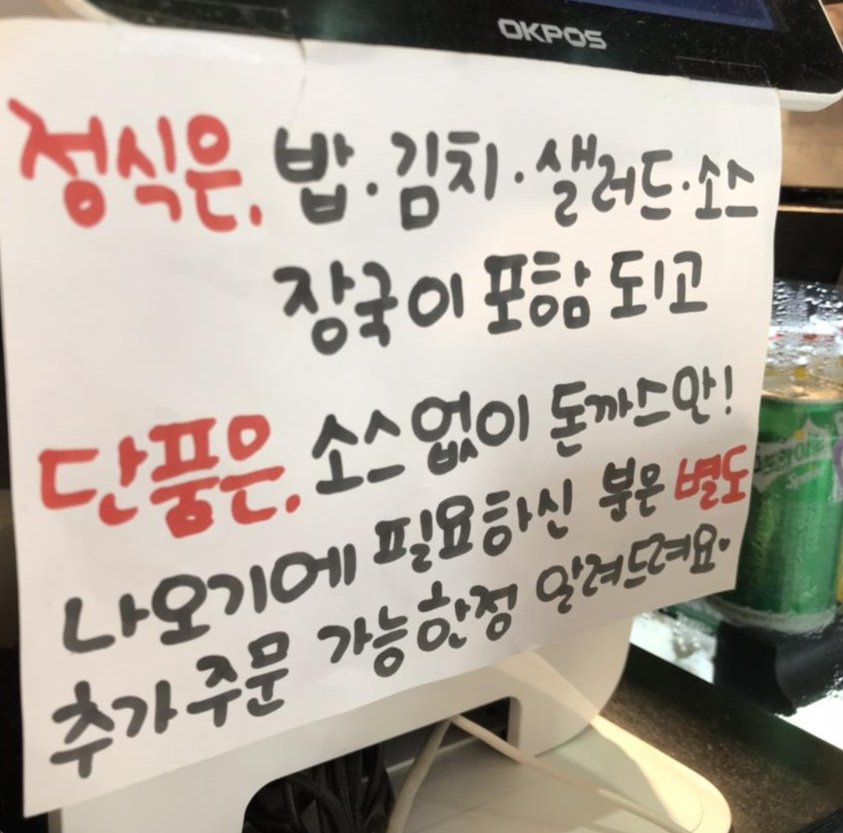 OKPOS
정식은. 밥·김치·샐러드·소스
장국이 포함 되고
단품은. 소스없이 돈까스만!
나오기에 필요하신 분은 별도
추가주문 가능한점 알려드려요.
Sprite